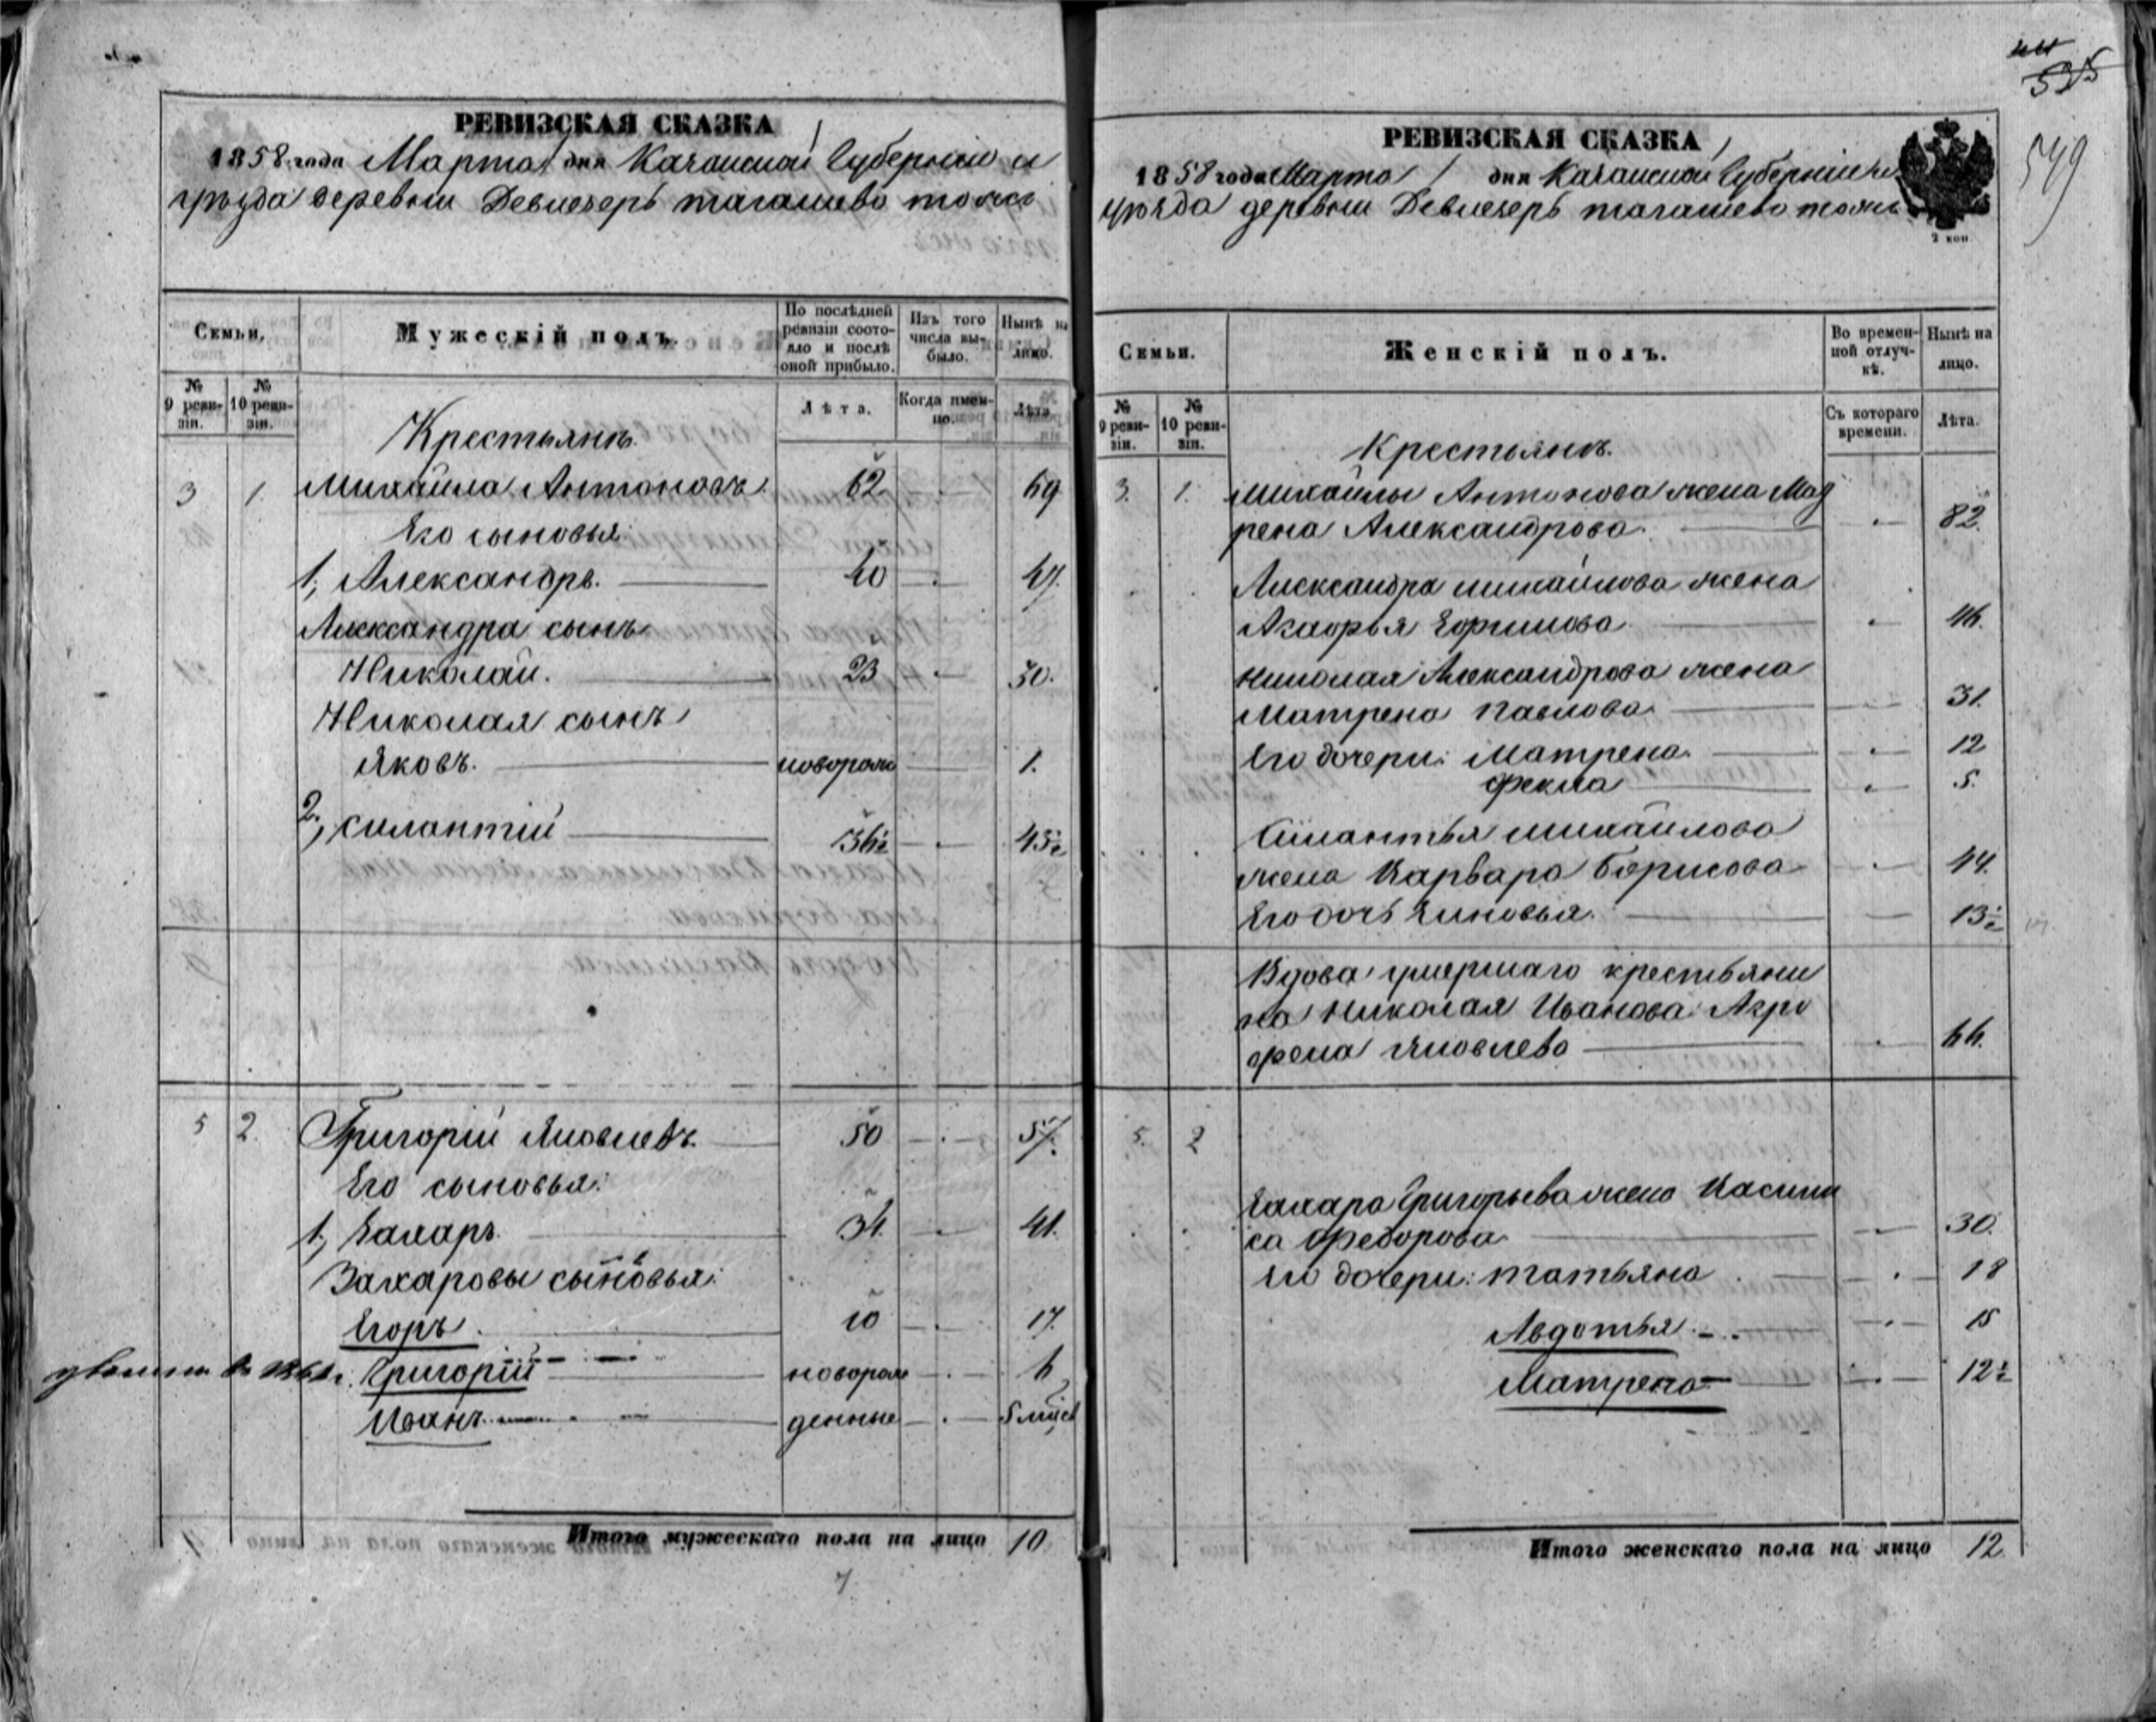 РЕВИЗСКАЯ СКАЗКА
1858 года Марта дня Казанской Губернии и
уѣзда деревни Девлезерь тагашево тожъ
Семьи.
Мужескій полъ.
По послѣдней ревизіи состояло и послѣ оной прибыло.
Изъ того числа выбыло.
Нынѣ на лицо.
№ 9 ревизіи.
№ 10 ревизіи.
Лѣта.
Когда именно.
Лѣта.
Крестьянъ.
3 1. Михайла Антоновъ 62 69
Его сыновья:
1, Александръ. 40 47.
Александра сынъ
Николай. 23 30.
Николая сынъ
Яковъ. новорож 1.
2, Силантій 36½ 43½
5 2. Григорій Яковлевъ. 50 57.
Его сыновья:
1, Захаръ. 34. 41.
Захаровы сыновья:
Егоръ. 10 17.
Григорій новорож 6
Иванъ денные 5 мѣся
Итого мужескаго пола на лицо 10
РЕВИЗСКАЯ СКАЗКА
1858 года Марта дня Казанской Губерніи и
уѣзда деревни Девлезерь тагашево тожъ
2 коп
549
Семьи.
Женскій полъ.
Во временной отлучкѣ.
Нынѣ на лицо.
№ 9 ревизіи.
№ 10 ревизіи.
Съ котораго времени.
Лѣта.
Крестьянъ.
3. 1. Михайлы Антонова жена Мат
рена Александрова. 82.
Александра Михайлова жена
Ефимова 46.
Николая Александрова жена
Матрена Павлова 31.
Его дочери: Матрена. 12
Фекла 5.
Силантья Михайлова
жена Варвара Борисова 44.
Его дочь Зиновья. 13½
Вдова умершаго крестьяни
на Николая Иванова Агро
фена Яковлева 66.
5. 2
Захара Григорьева жена Васили
са Федорова 30.
Его дочери: Татьяна 18
Авдотья 15
Матрена 12½
Итого женскаго пола на лицо 12.